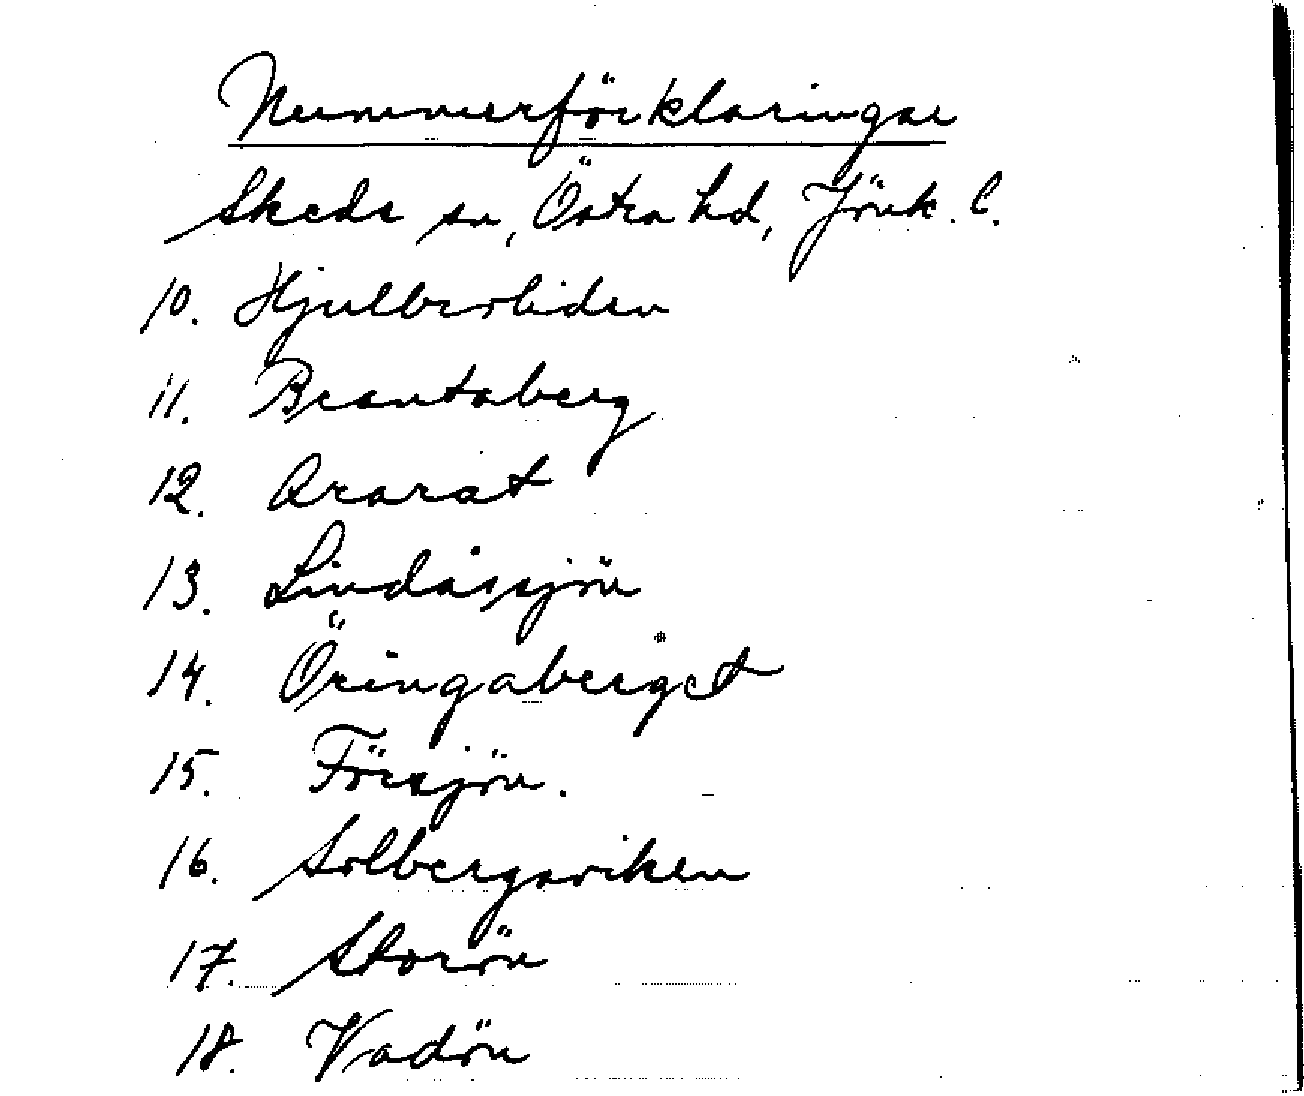 Nummerförklaringar
Skeds sn, Östra hd, Jönk. l.
10. Hjulbersliden
11. Brantaberg
12. Ararat
13. Lindåssjön
14. Öringaberget
15. Försjön.
16. Solbergaviken
17. Storön
18. Vadön